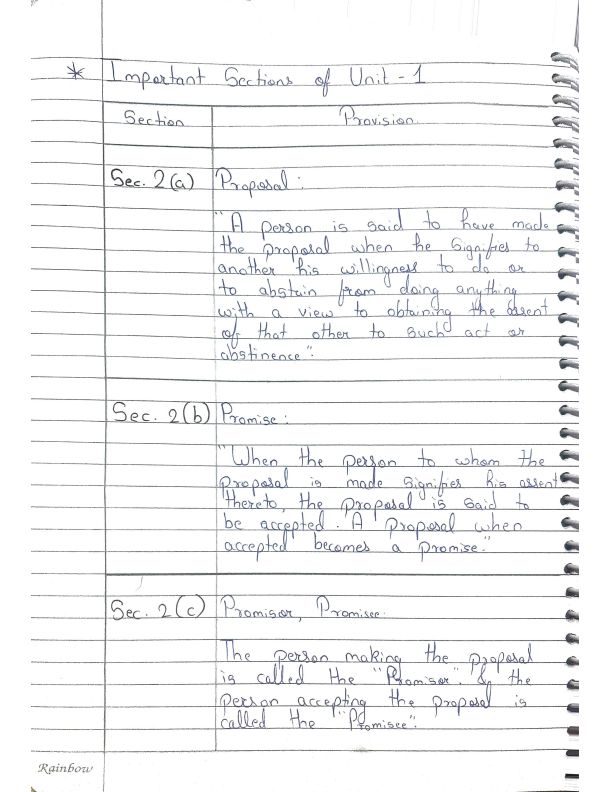 * Important Sections of Unit - 1
Section Provision.
Sec. 2(a) Proposal :
"A person is said to have made
the proposal when he signifies to
another his willingness to do or
to abstain from doing anything
with a view to obtaining the assent
of that other to such act or
abstinence".
Sec. 2(b) Promise :
"When the person to whom the
proposal is made signifies his assent
thereto, the proposal is said to
be accepted. A proposal when
accepted becomes a promise."
Sec. 2(c) Promisor, Promisee.
The person making the proposal
is called the "Promisor". & the
person accepting the proposal is
called the "Promisee".
Rainbow